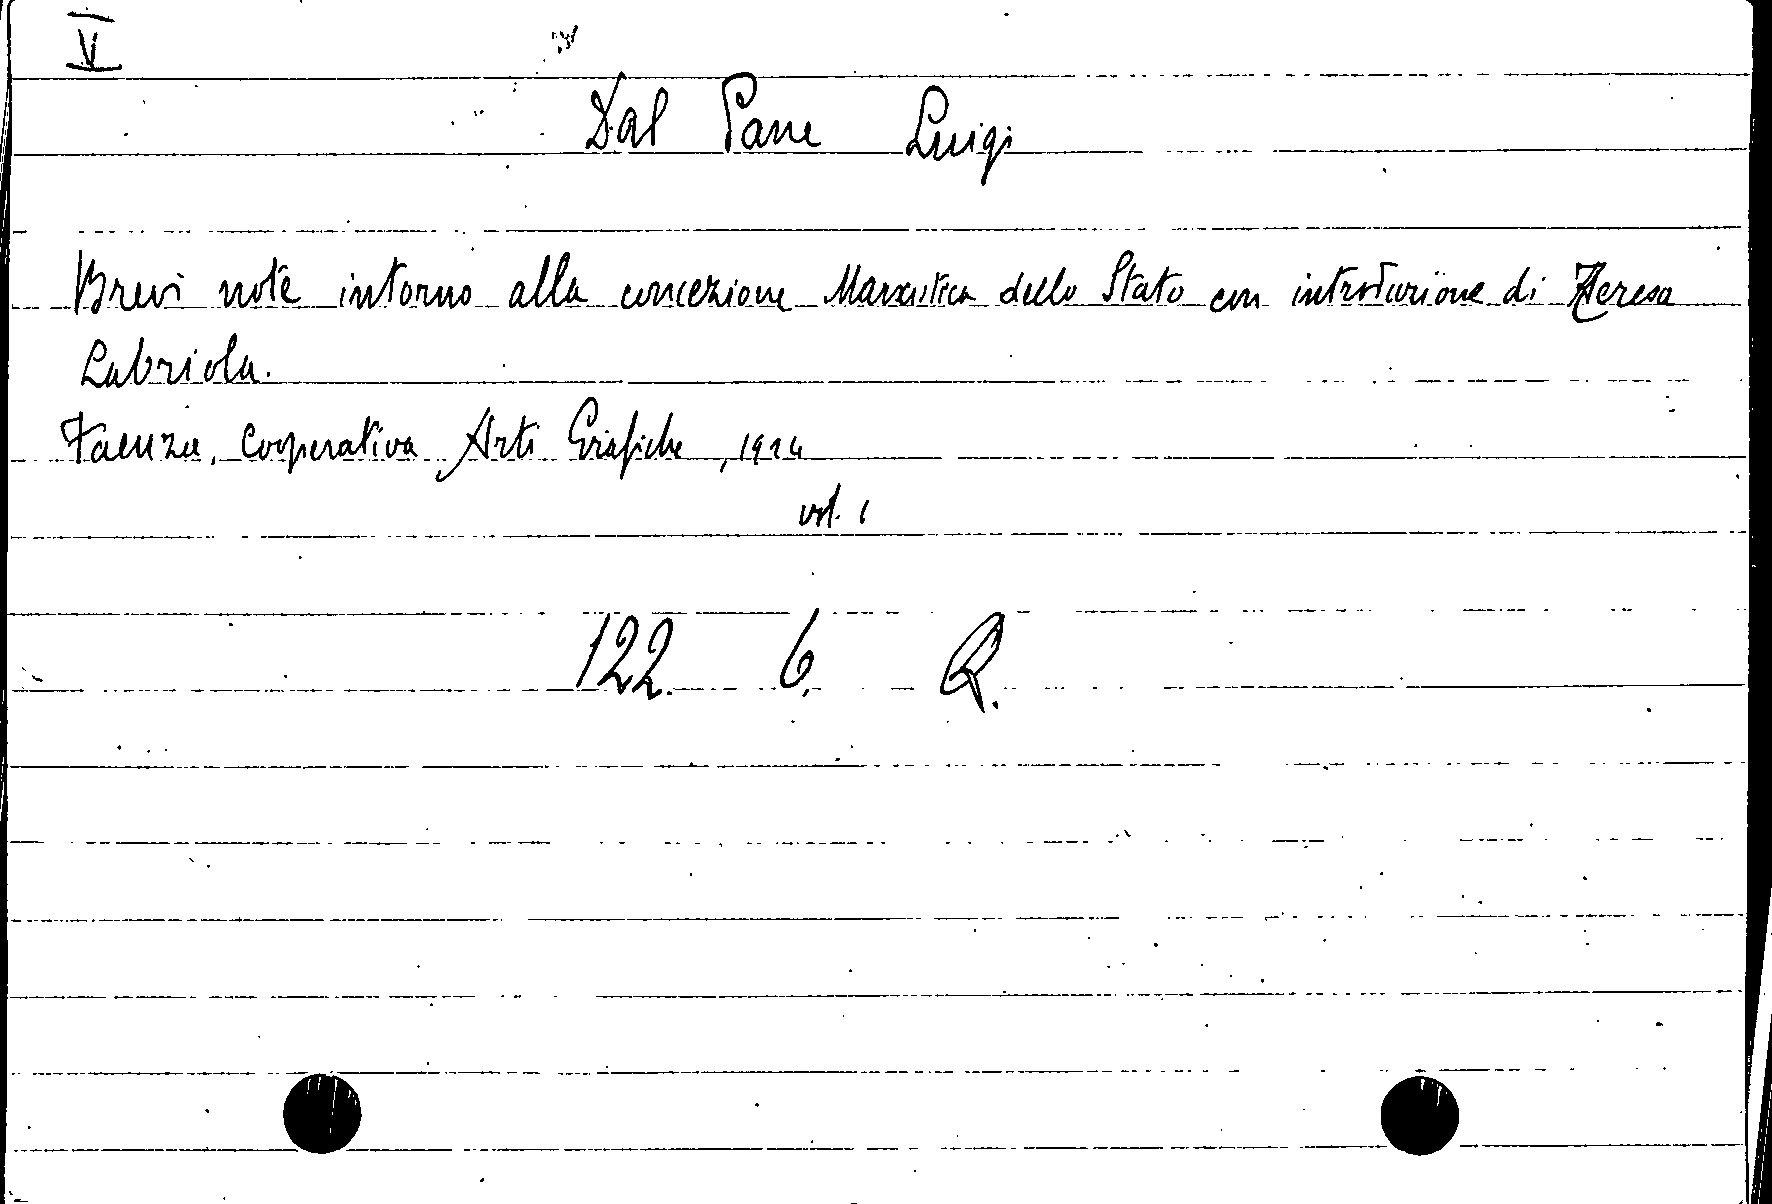 V
Dal Pane Luigi
Brevi note intorno alla concezione Marxistica dello Stato con introduzione di Teresa
Labriola.
Faenza, Cooperativa Arti Grafiche, 1924
vol. 1
122. 6. Q.